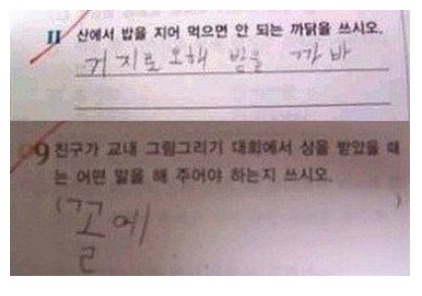 11 산에서 밥을 지어 먹으면 안 되는 까닭을 쓰시오.
거지로 오해 받을 까바
9 친구가 교내 그림그리기 대회에서 상을 받았을 때
는 어떤 말을 해 주어야 하는지 쓰시오.
( 꼴에 )